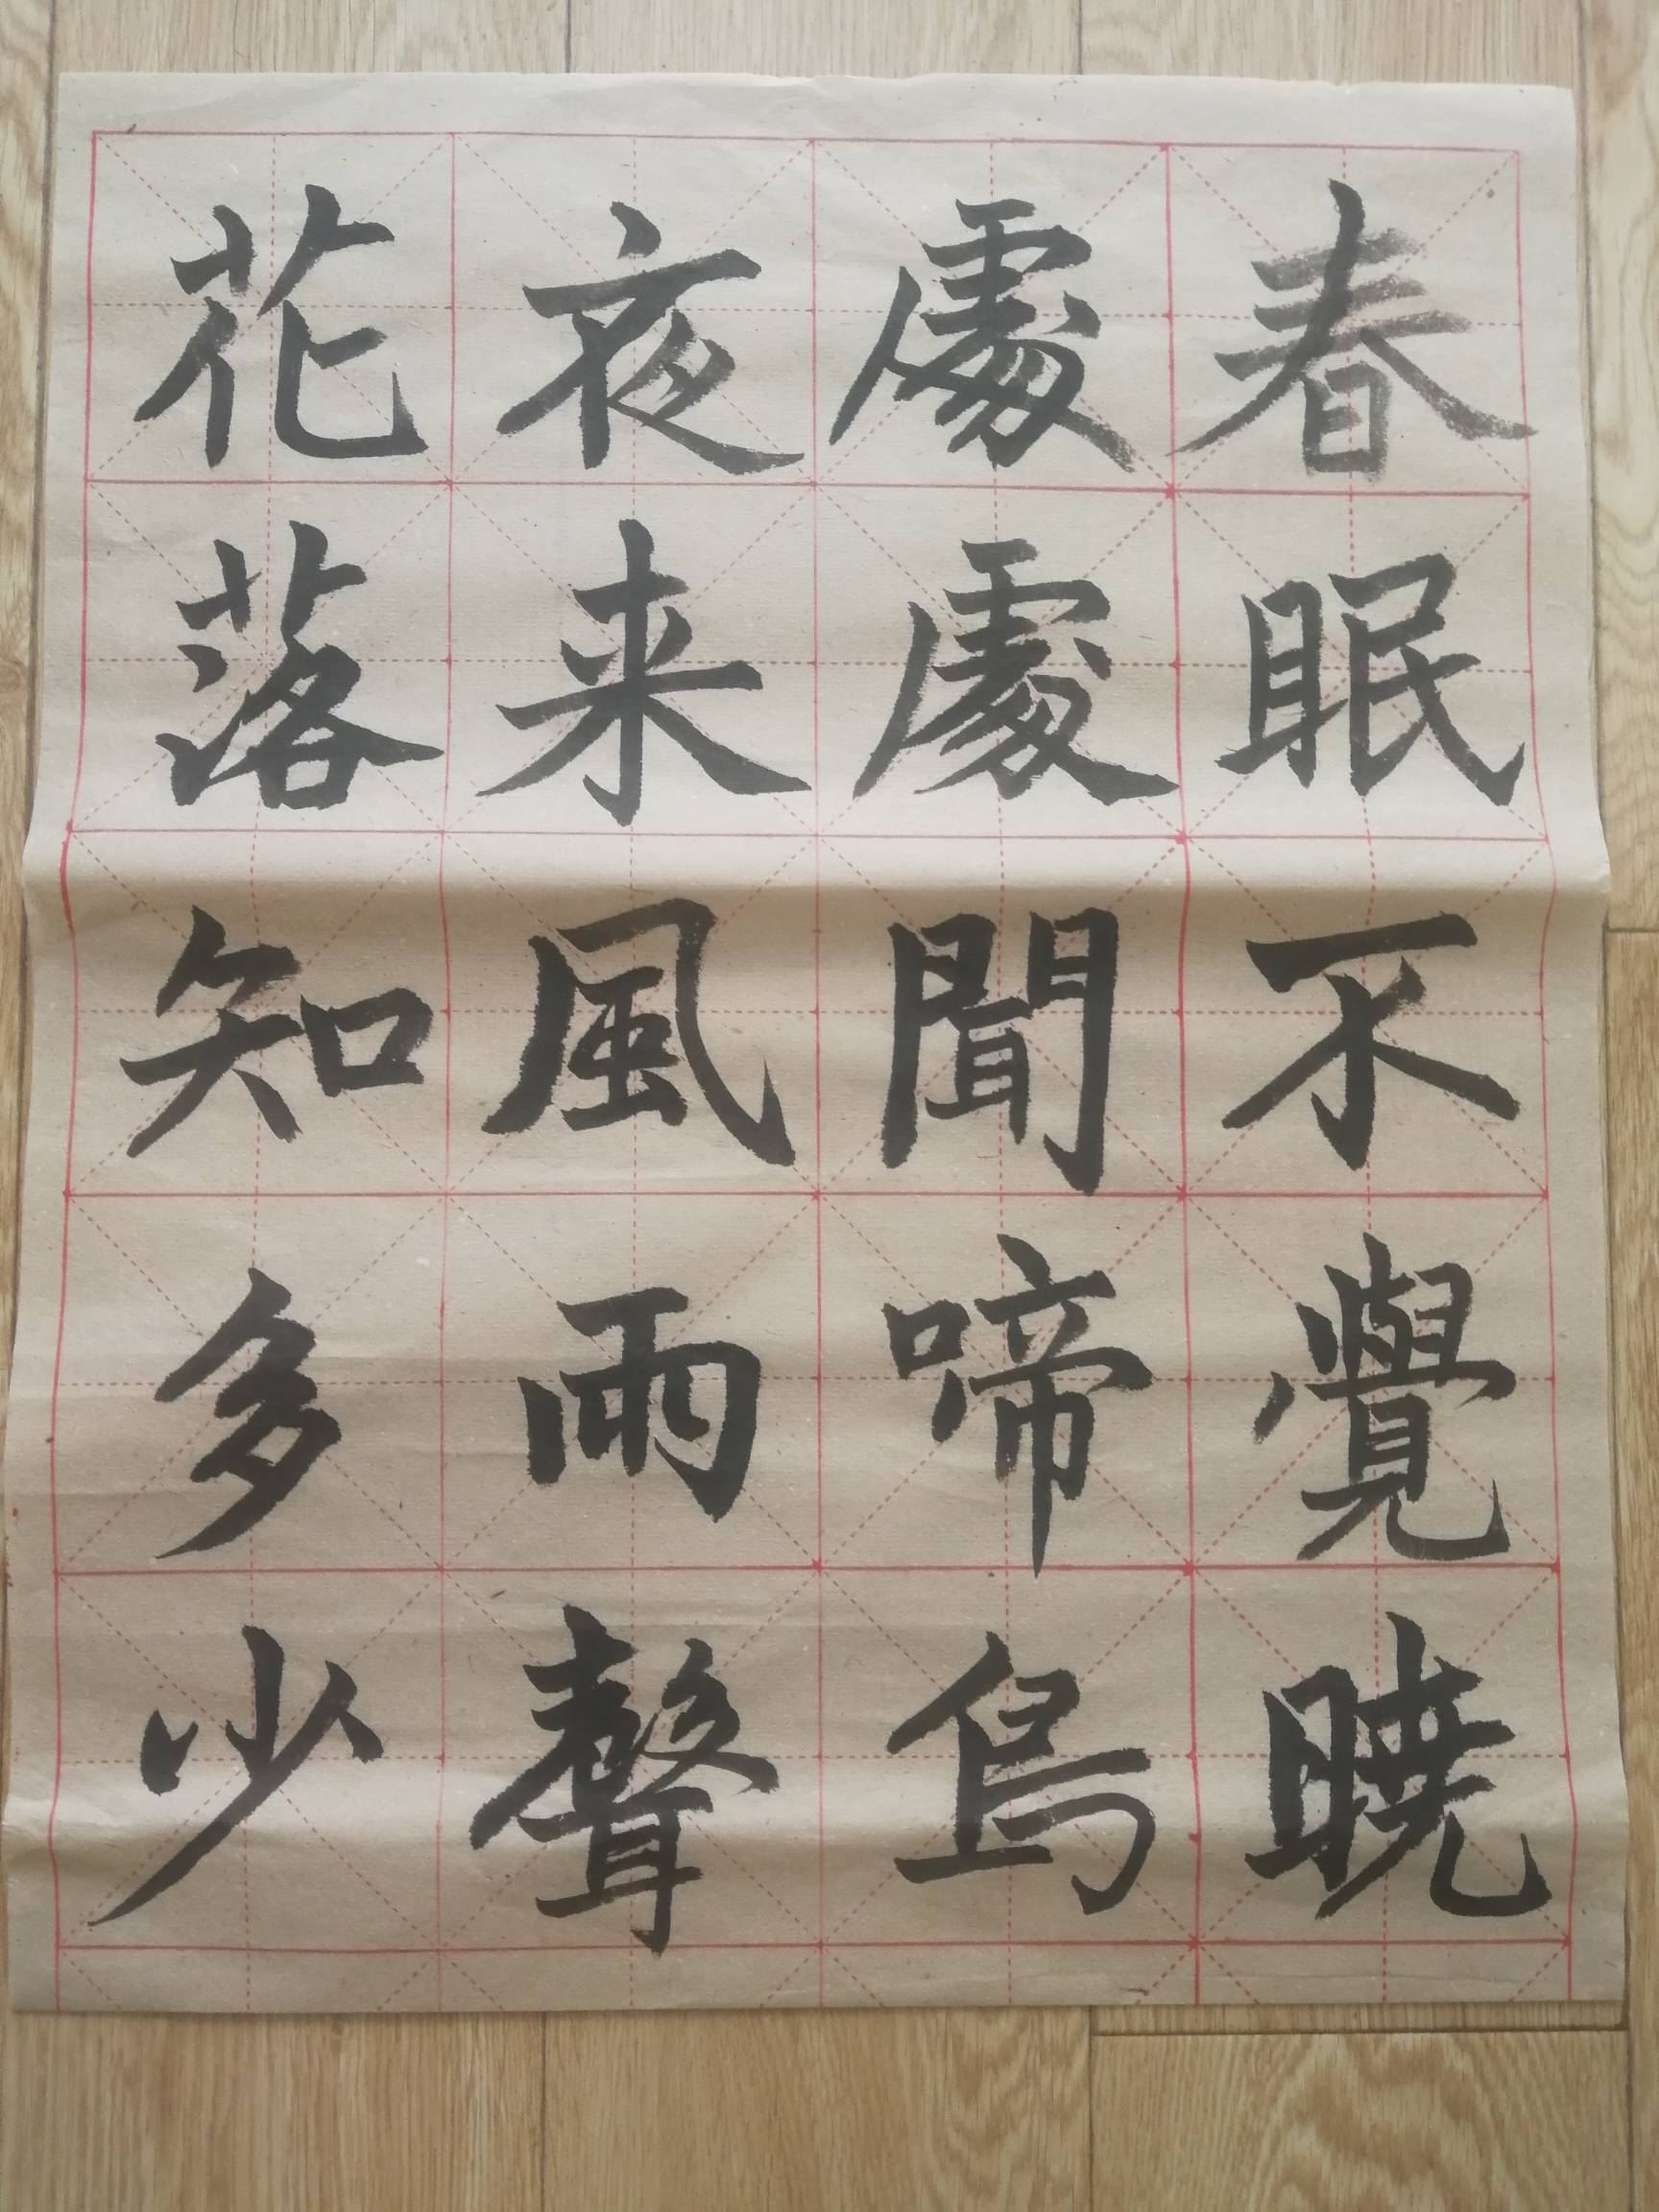 春眠不覺暁
處處聞啼鳥
夜来風雨聲
花落知多少